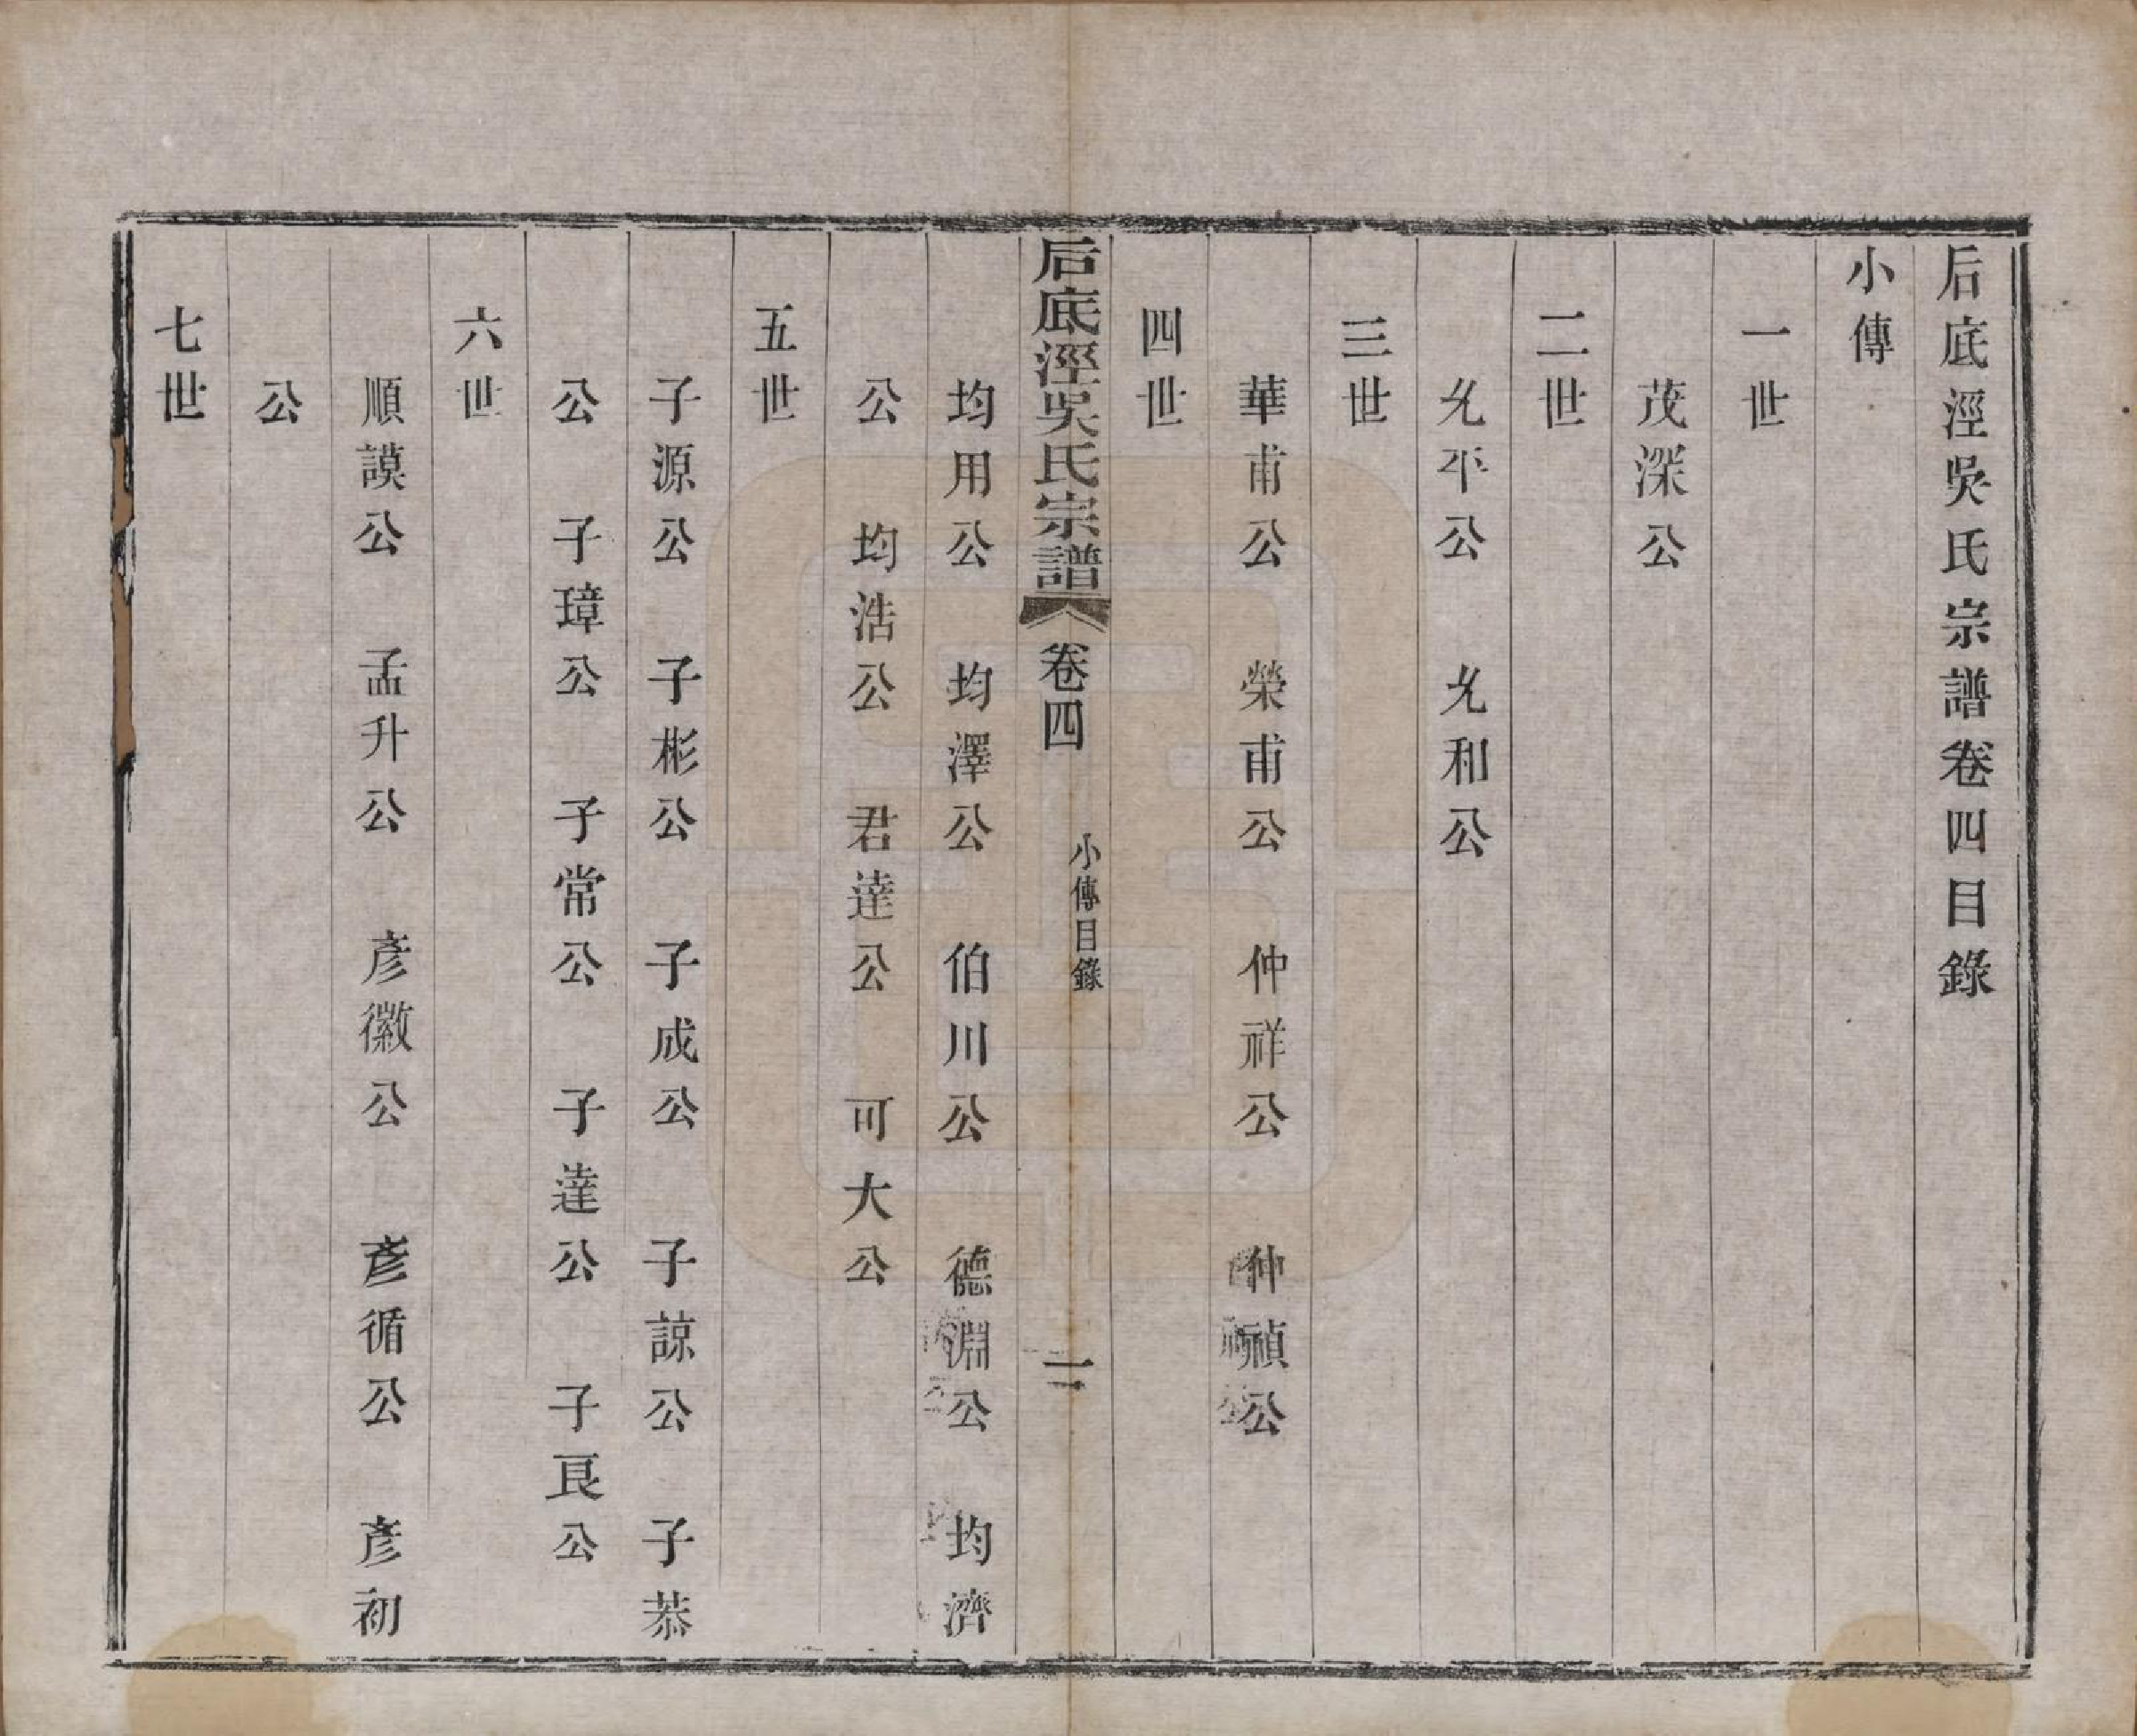 后底涇吳氏宗譜卷四目錄
小傳
一世
茂深公
二世
允平公　允和公
三世
華甫公　榮甫公　仲祥公　仲禎公
四世
后底涇吳氏宗譜　卷四　小傳目錄　一
均用公　均澤公　伯川公　德淵公　均濟
公　均浩公　君達公　可大公
五世
子源公　子彬公　子成公　子諒公　子恭
公　子璋公　子常公　子達公　子良公
六世
順謨公　孟升公　彥徽公　彥循公　彥初
公
七世